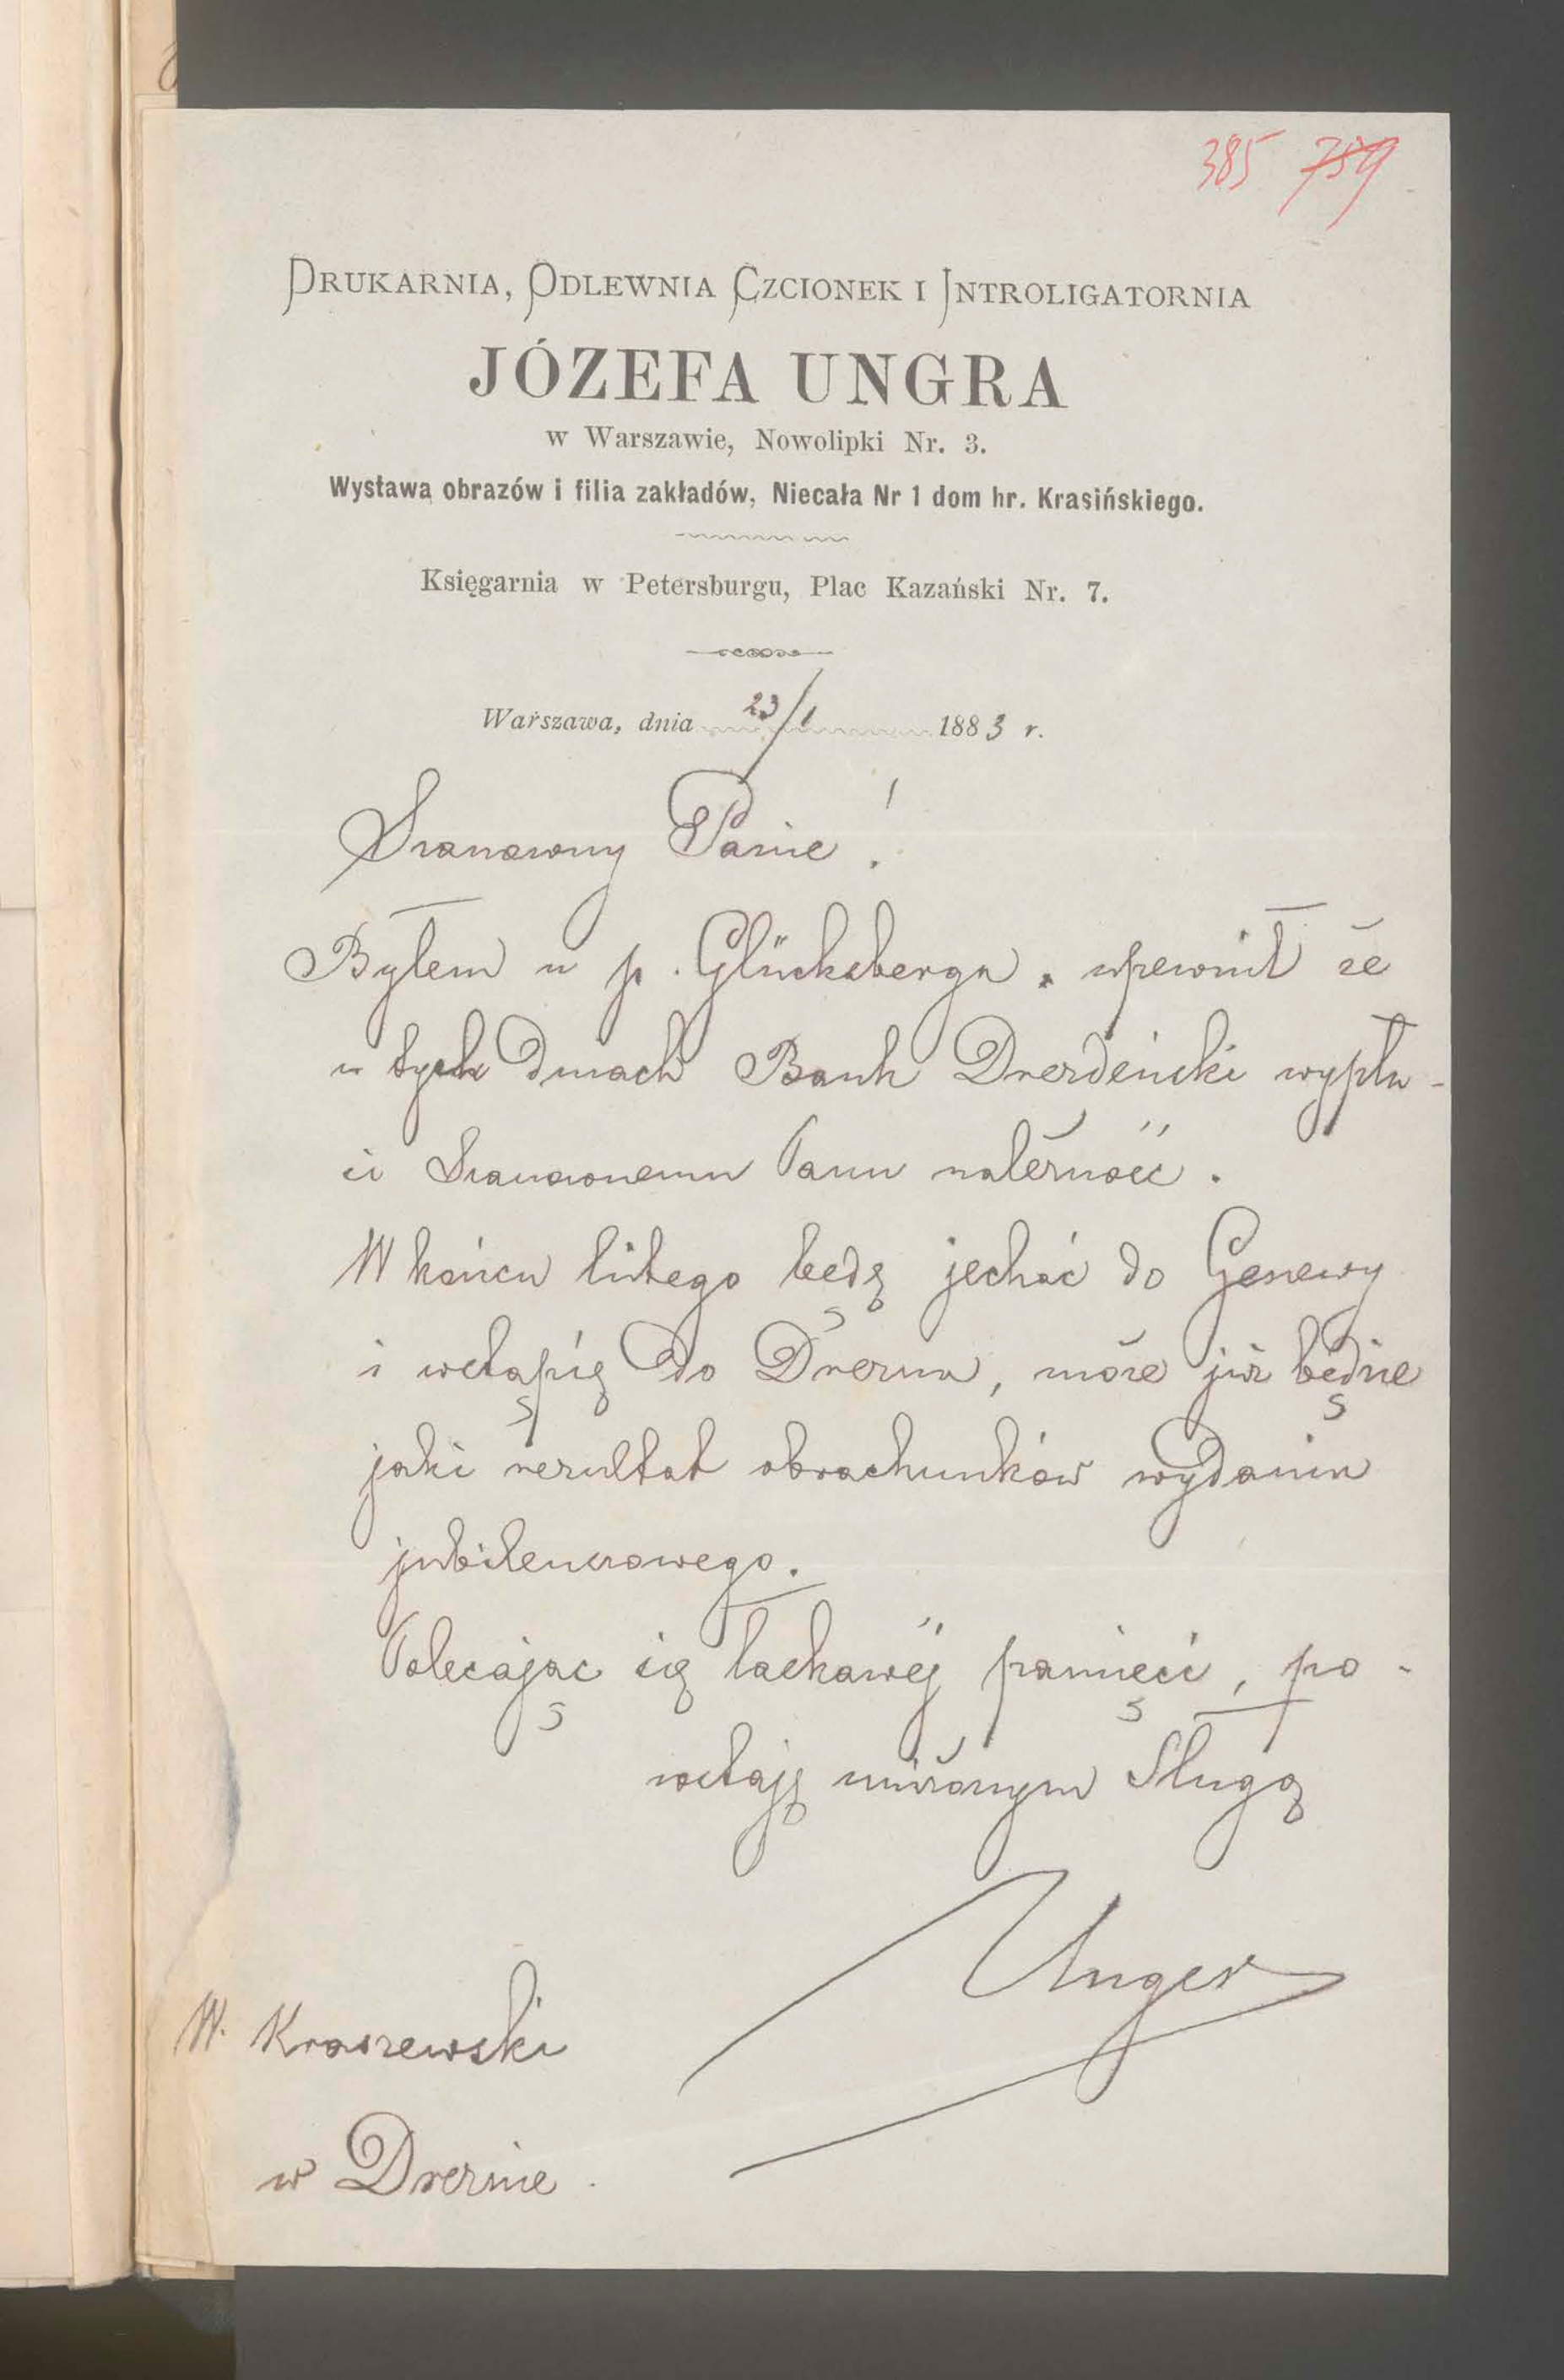 385 759
DRUKARNIA, ODLEWNIA CZCIONEK I INTROLIGATORNIA
JÓZEFA UNGRA
w Warszawie, Nowolipki Nr. 3.
Wystawa obrazów i filia zakładów, Niecała Nr 1 dom hr. Krasińskiego.
Księgarnia w Petersburgu, Plac Kazański Nr. 7.
Warszawa, dnia 23/1 1883 r.
Szanowny Panie!
Byłem u p. Glücksberga. upewnił że
w tych dniach Bank Drezdeński wypła-
ci Szanownemu Panu należność.
W końcu lutego będę jechać do Genewy
i wstąpię do Drezna, może już będzie
jaki rezultat obrachunków wydania
jubileuszowego.
Polecając się łaskawéj pamięci, po-
zostaję uniżonym Sługą
Unger
W. Kraszewski
w Dreznie.